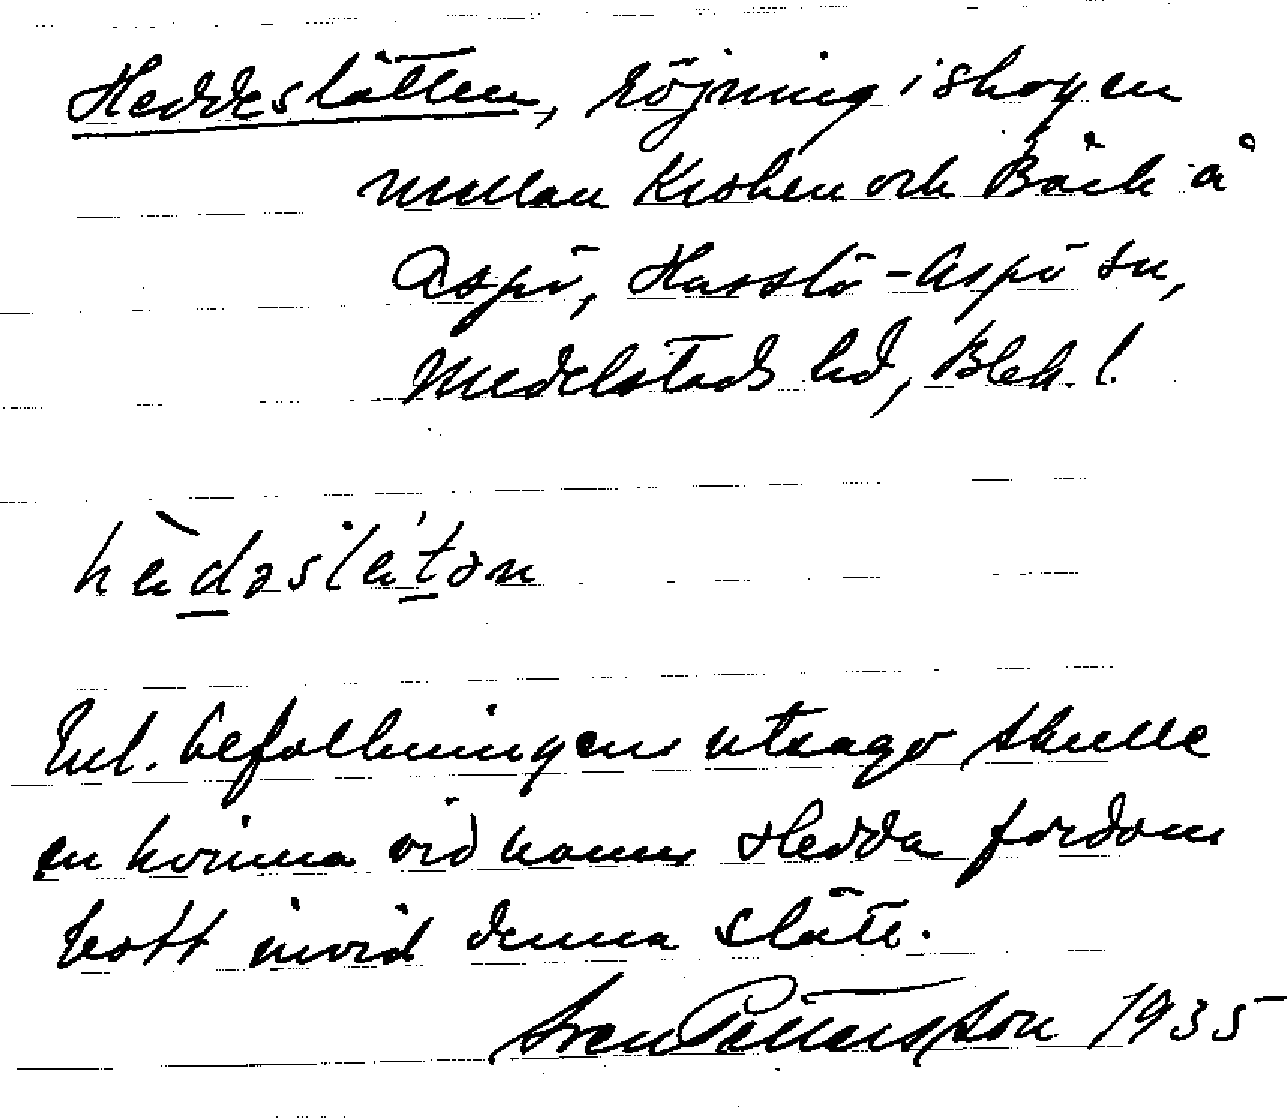 Heddeslätten, röjning i skogen
mellan Kroken och Bäck å
Aspö, Hasslö-Aspö sn,
Medelstads hd, Blek. l.
hèdəslätən
Enl. befolkningens utsago skulle
en kvinna vid namn Hedda fordom
bott invid denna slätt.
Sven Pettersson 1935